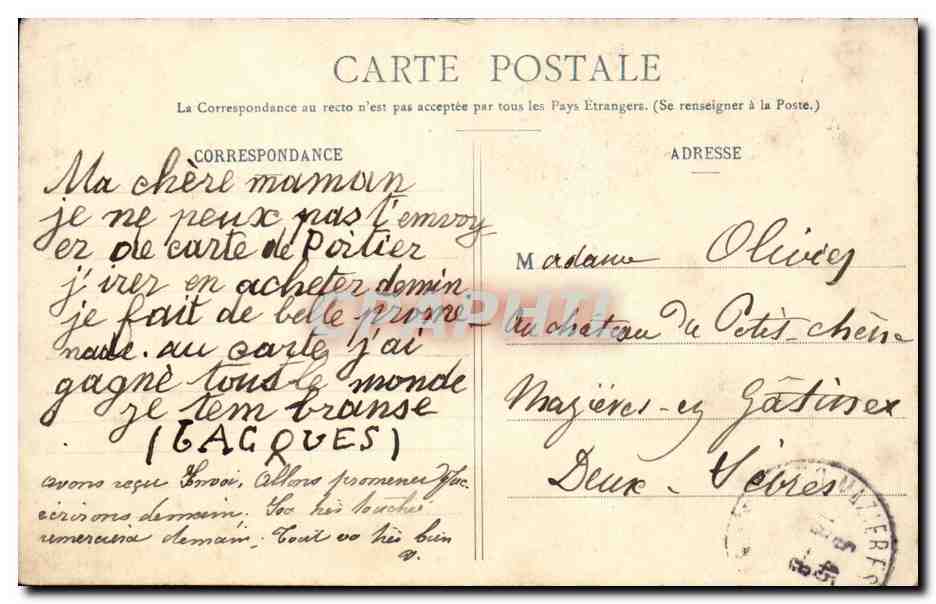 CARTE POSTALE
La Correspondance au recto n'est pas acceptée par tous les Pays Étrangers. (Se renseigner à la Poste.)
CORRESPONDANCE
Ma chère maman
je ne peux pas t'envoy
er de carte de Poitier
j'irer en acheter demin
je fait de belle prome-
nade. au carte j'ai
gagné tous le monde
je tem branse
(JACQUES)
avons reçu Envoi, Allons promener
écrirons demain. très touchée
remerciera demain. Tout va très bien
ADRESSE
Madame Olivier
Au château du Petit-chêne
Mazières-en Gâtinex
Deux-Sèvres
MAZIERES
CPAPHIL